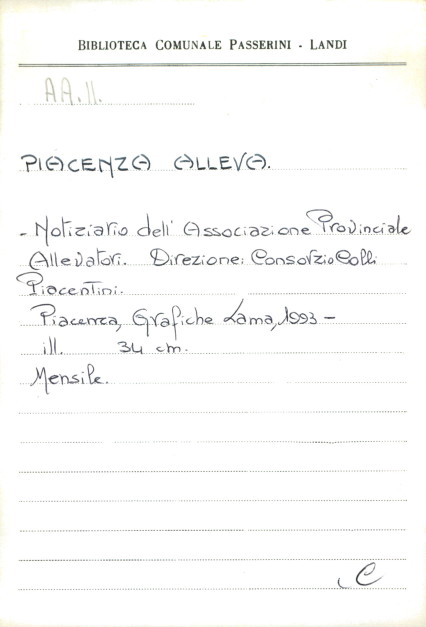 BIBLIOTECA COMUNALE PASSERINI - LANDI
AA.II.
PIACENZA ALLEVA.
- Notiziario dell' Associazione Provinciale
Allevatori. Direzione: Consorzio Colli
Piacentini.
Piacenza, Grafiche Lama, 1993 -
ill. 34 cm.
Mensile.
C